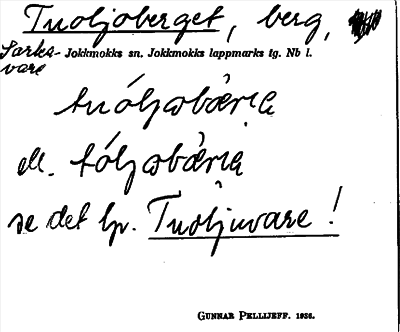 Tuoljoberget, berg,
Sarka- Jokkmokks sn. Jokkmokks lappmarks tg. Nb l.
vare
tuóljɔbæ̀rja
el. tóljɔbæ̀rja
se det lp. Tuoljuvare!
GUNNAR PELLIJEFF. 1936.